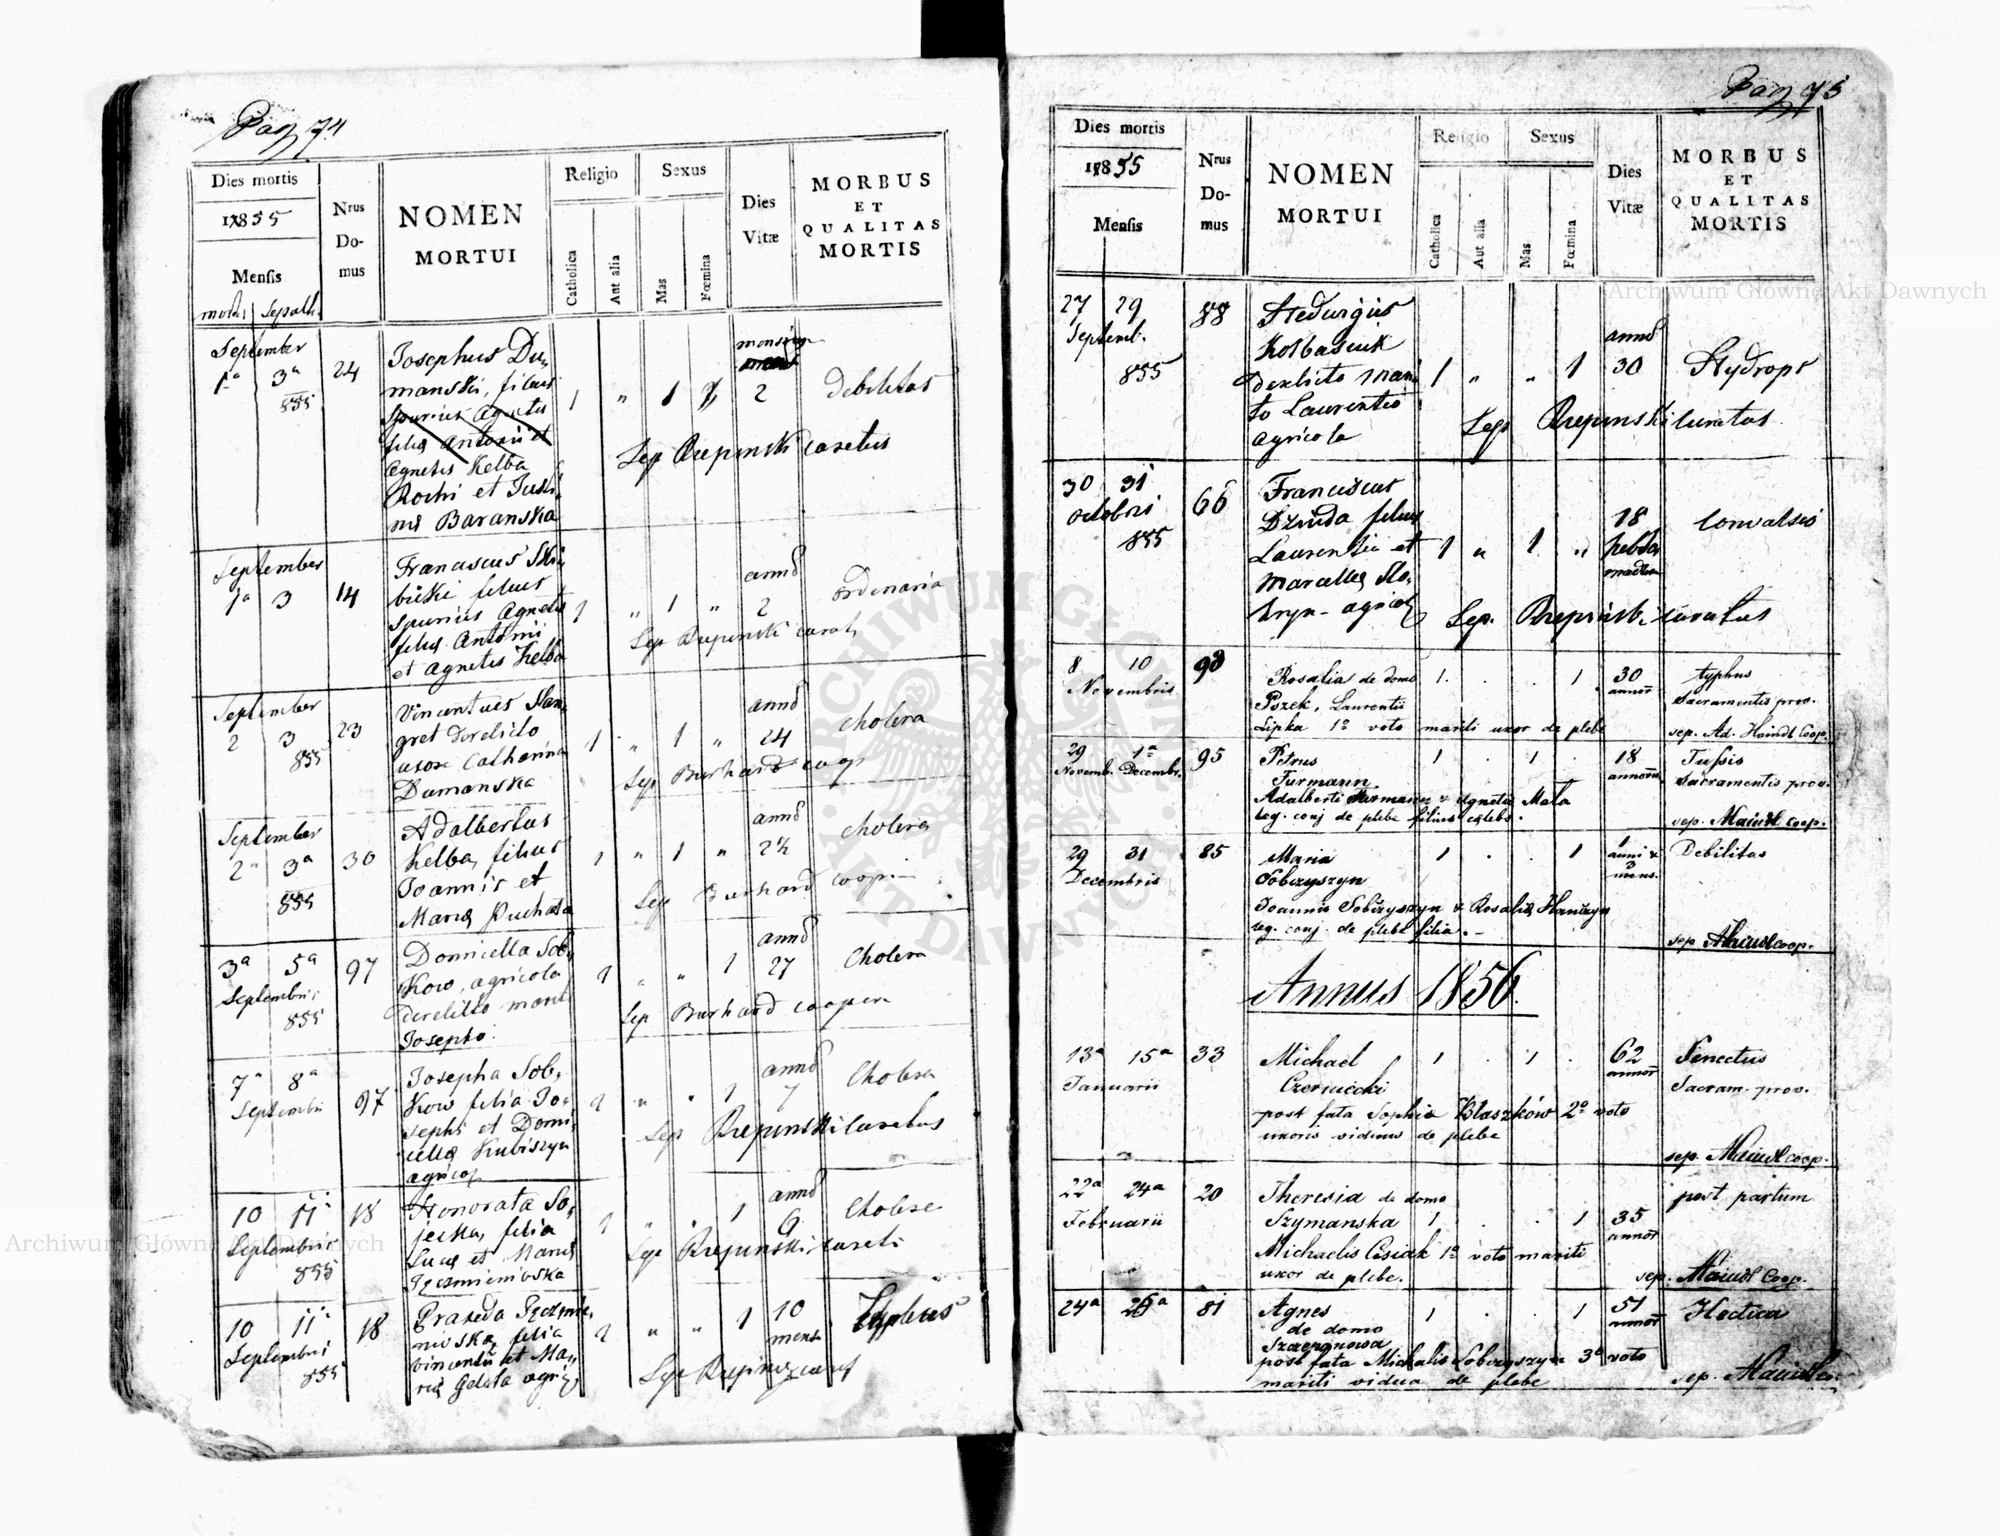 Pag 74
Dies mortis
1855
Mensis
mortis Sepult.
Nrus
Do-
mus
NOMEN
MORTUI
Religio
Catholica
Aut alia
Sexus
Mas
Fœmina
Dies
Vitæ
MORBUS
ET
QUALITAS
MORTIS
September
1a 3a
855
24
Josephus Du-
manski, filius
spurius Agnetis
filia Antonii et
Agnetis Kelba
Rochi et Justi-
na Baranska
1 " 1
2
Debilitas
Sep Rzepinski curatus
September
1a 3
14
Franciscus Ski-
bicki filius
spurius Agnetis
filia Antonii
et Agnetis Kelba
1 " 1 "
annd
2
ordinaria
Sep Rzepinski curat
September
2 3
855
23
Vincentius Man-
gret derelicto
uxore Catharina
Dumanska
1 " 1 "
annd
24
cholera
Sep Burhard coop
September
2a 3a
855
30
Adalbertus
Kelba, filius
Joannis et
Maria Puchala
1 " 1 "
annd
2½
cholera
Sep Burhard coop
3a 5a
Septembris
855
97
Domicella Sob-
kow, agricola
derelicto marit
Josepho.
1 " " 1
annd
27
Cholera
Sep Burhard coopera
7a 8a
Septembris
97
Josepha Sob-
kow filia Jo-
sephi et Domi-
cella Kubiszyn
agricol
1 " " 1
annd
7
Cholera
Sep Rzepinski Curatus
10 11
Septembris
855
18
Honorata So-
jecka, filia
Luca et Maria
1 " " 1
annd
6
Cholera
Sep Rzepinski curat
10 11
Septembris
855
18
Praxeda
filia
Vincentii et Ma-
ria agric
1 " " 1
10
mens
Typhus
Sep
Pag 75
Dies mortis
1855
Mensis
Nrus
Do-
mus
NOMEN
MORTUI
Religio
Catholica
Aut alia
Sexus
Mas
Fœmina
Dies
Vitæ
MORBUS
ET
QUALITAS
MORTIS
27 29
Septemb.
855
88
Hedwigis
Kolbasiuk
Derelicto mari-
to Laurentio
agricola
1 " " 1
annd
30
Hydrops
Sep Rzepinski curatus
30 31
octobris
855
66
Franciscus
Dziuda filius
Laurentii et
Marcella Slo-
agricol
1 " 1 "
18
hebdo
madum
Convulsio
Sep. Rzepinski curatus
8 10
Novembris
90
Rosalia de domo
Pozek, Laurentii
Lipka 1o voto mariti uxor de plebe
1 . . 1
30
annor
typhus
Sacramentis prov.
sep. Ad. Haindl Coop.
29 1a
Novemb. Decembr.
95
Petrus
Furmann
Adalberti Furmann & Agnetis Mata
leg. conj de plebe filius cælebs.
1 . 1 .
18
annorum
Tussis
Sacramentis prov.
sep. Haindl coop.
29 31
Decembris
85
Maria
Sobczyszyn
Joannis Sobczyszyn & Rosalia Hanczyn
leg. conj. de plebe filia.-
1 . . 1
1
anni &
3
mens.
Debilitas
sep Haindl coop.
Annus 1856.
13a 15a
Januarii
33
Michael
Czerniecki
post fata Sophia Błaszków 2o voto
uxoris viduus de plebe
1 . 1 .
62
annor
Senectus
Sacram. prov.
sep. Haindl coop.
22a 24a
Februarii
20
Theresia de domo
Szymanska
Michaelis Cesiak 1o voto mariti
uxor de plebe.
1 . . 1
35
annor
post partum
sep. Haindl Coop.
24a 26a
81
Agnes
de domo
Szczepanowa
post fata Michaelis Sobczyszyn 3o voto
mariti vidua de plebe
1 . . 1
51
annor
Hectica
sep. Haindl
Archiwum Główne Akt Dawnych
Archiwum Główne Akt Dawnych
ARCHIWUM GŁÓWNE AKT DAWNYCH